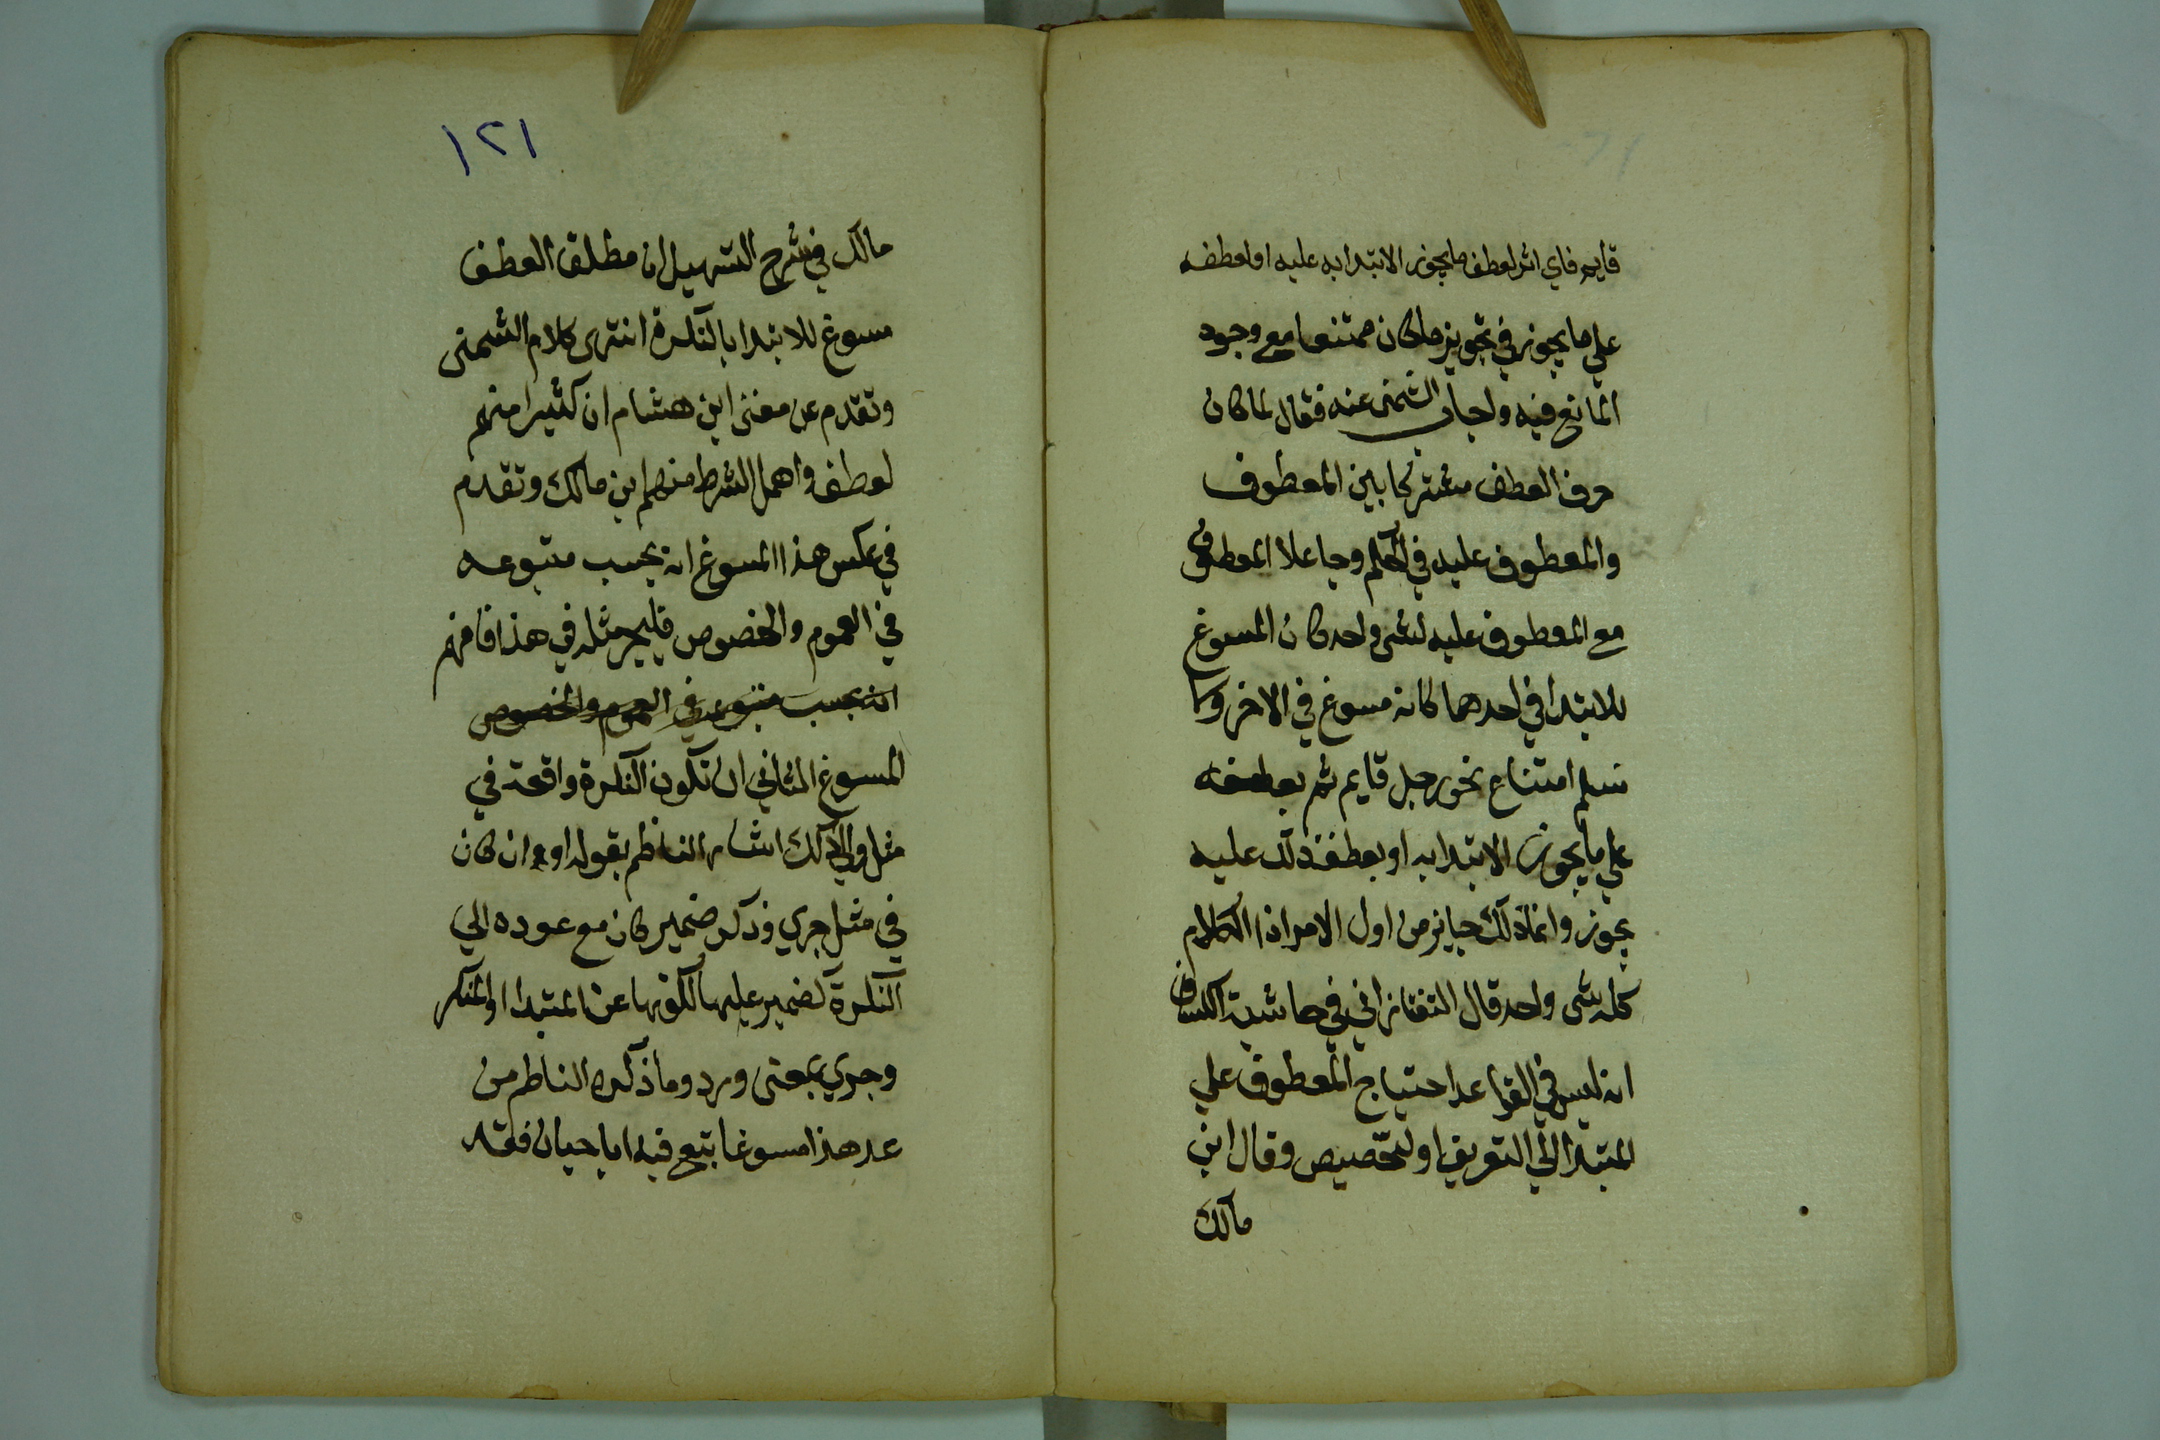 قايم فاي اثر لعطف ما يجوز الابتدا به عليه او لعطفه
علي ما يجوز في تجويز ما كان ممتنعا مع وجود
المانع فيه واجاب الشمنى عنه فقال لما كان
حرف العطف مشتركا بين المعطوف
والمعطوف عليه في الحكم وجاعلا المعطوف
مع المعطوف عليه لشى واحد كان المسوغ
للابتدا في احدهما كانه مسوغ في الاخر ولا
نسلم امتناع نحو رجل قايم ثم بعطفه
علي ما يجوز الابتدا به او بعطف ذلك عليه
يجوز وانما ذلك جايز من اول الامر اذ الكلام
كله شى واحد قال التفتازاني في حاشية الكشاف
انه ليس في القواعد احتياج المعطوف علي
المبتدا الي التعريف او التخصيص وقال ابن
مالك
١٢١
مالك في شرح التسهيل ان مطلق العطف
مسوغ للابتدا بالنكرة انتهى كلام الشمنى
وتقدم عن مغنى ابن هشام ان كثيرا منهم
لعطف واهمل الشرط منهم ابن مالك وتقدم
في عكس هذا المسوغ انه بحسب متبوعه
في العموم والخصوص فليجر مثله في هذا فافهم
انه بحسب متبوعه في العموم والخصوص
المسوغ الثاني ان تكون النكرة واقعة في
مثل والي ذلك اشار الناظم بقوله او وان كان
في مثل جري وذكر ضمير كان مع عوده الي
النكرة كضمير عليها لكونها عن المبتدا والمنكر
وجري بمعنى ورد وما ذكره الناظم من
عد هذا مسوغا بتبع فيه ابا حيان فقد